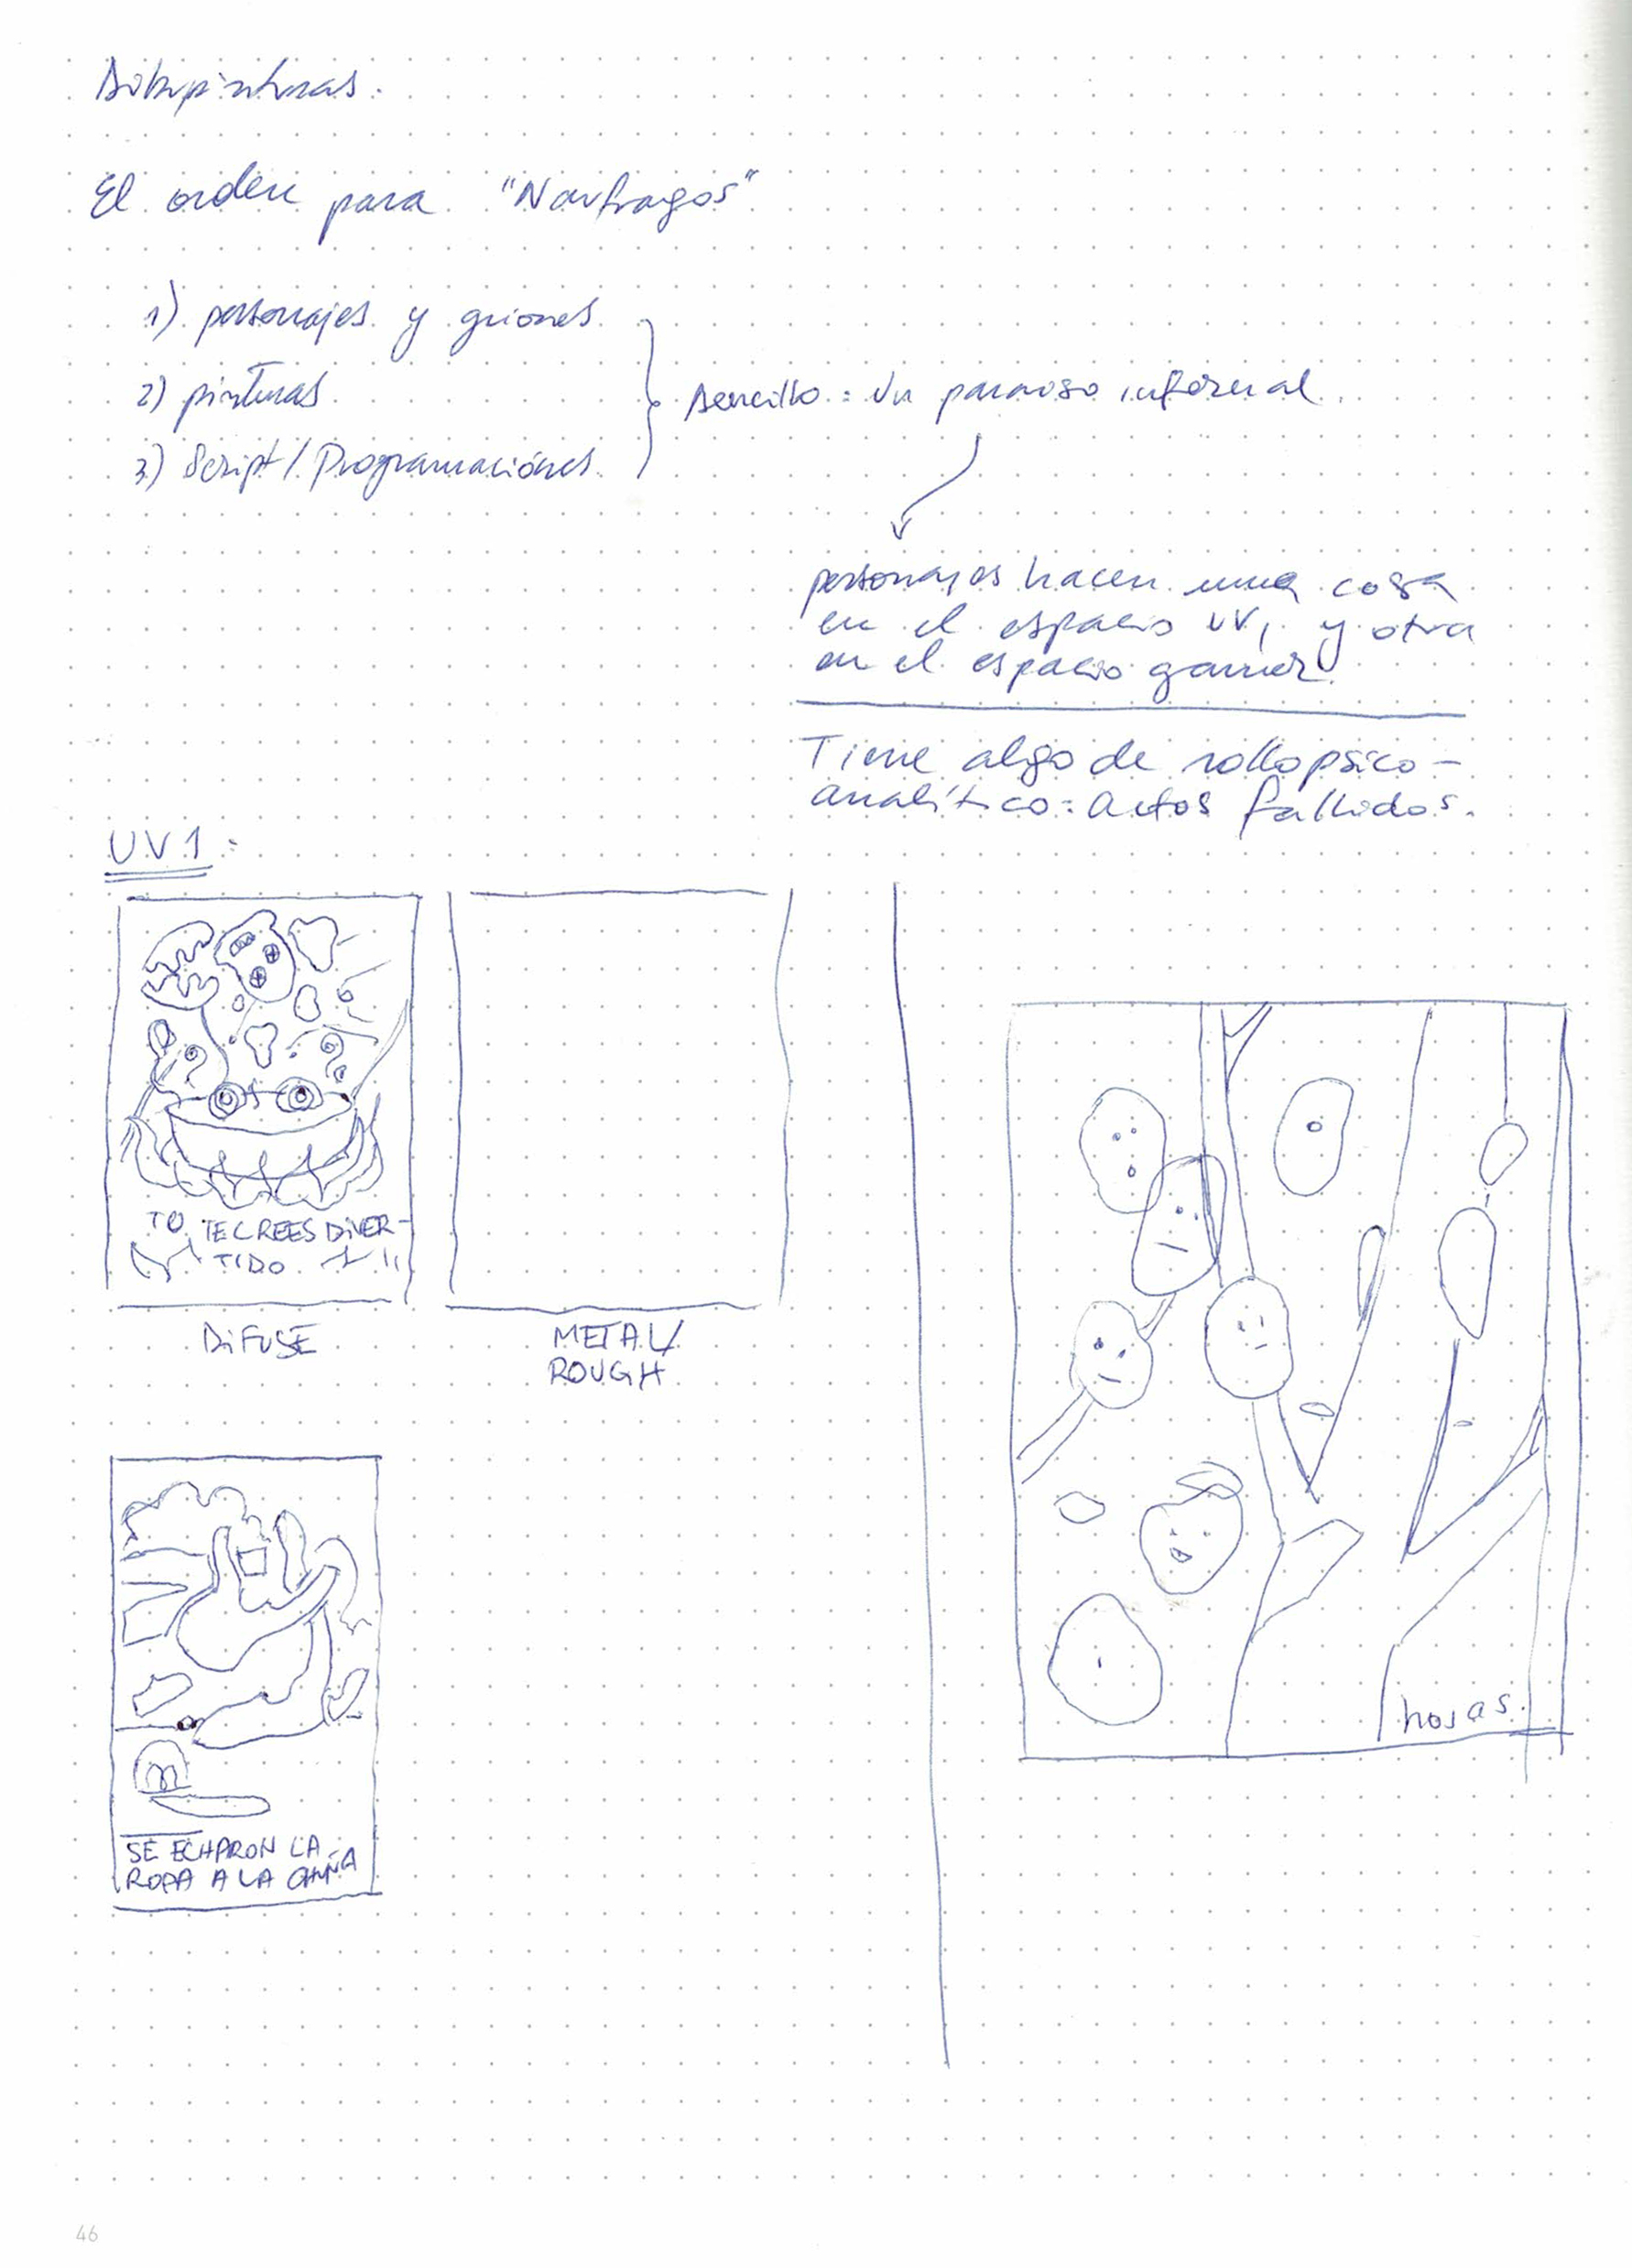 Dibupinturas.
El orden para "Naufragos"
1) personajes y guiones
2) pinturas
3) Script / Programaciónes
Sencillo: Un paraiso infernal.
personajes hacen una cosa
en el espacio UV, y otra
en el espacio gamer.
Tiene algo de rollo psico-
analítico: Actos fallidos.
UV1:
TU TE CREES DIVER-
TIDO
DIFUSE
METAL/
ROUGH
SE ECHARON LA
ROPA A LA
hojas.
46